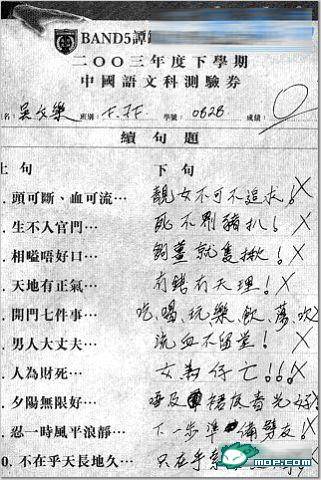 BAND5譚
二○○三年度下學期
中國語文科測驗券
名: 吳文樂 班別: F.3F. 學號: 0626 成績: 0
續句題
上句 下句
. 頭可斷、血可流… 靚女不可不追求! X
. 生不入官門… 死不劏豬扒! X
. 相嗌唔好口… 鋼薑就隻揪! X
. 天地有正氣… 有錢有天理! X
. 開門七件事… 吃、喝、玩、樂、飲、蕩、吹
. 男人大丈夫… 流血不留堂! X
. 人為財死… 女為仔亡!!! X
. 夕陽無限好… 唔及裙底春光好
. 忍一時風平浪靜… 下一步準備劈友! X
0. 不在乎天長地久… 只在乎
mop.com